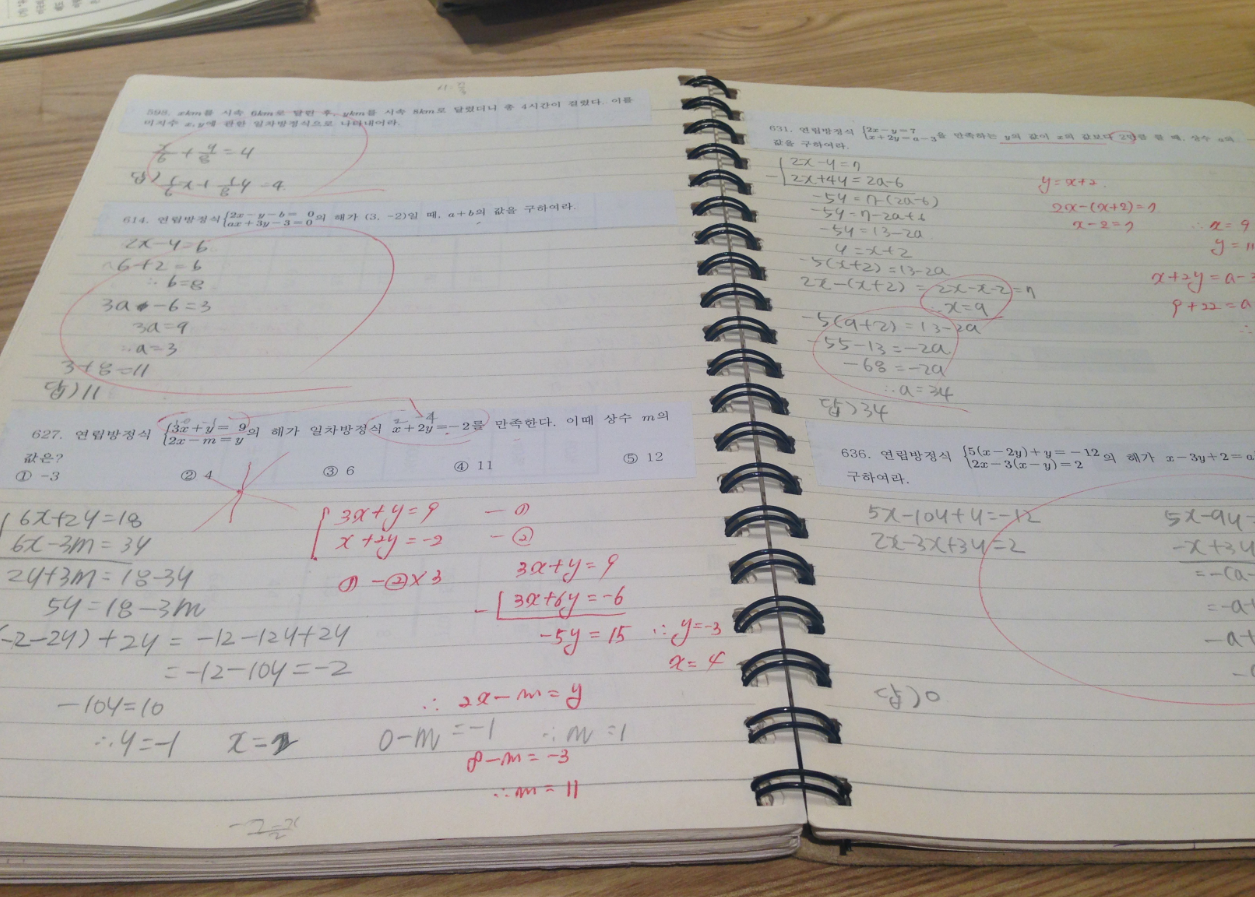 598. xkm를 시속 6km로 달린 후, ykm를 시속 8km로 달렸더니 총 4시간이 걸렸다. 이를
미지수 x, y에 관한 일차방정식으로 나타내어라.
x/6 + y/8 = 4
답) 1/6x + 1/8y = 4
614. 연립방정식 {2x-y-b= 0
ax+3y-3=0의 해가 (3, -2)일 때, a+b의 값을 구하여라.
2x-y=6
6+2=b
∴ b=8
3a -6=3
3a=9
∴a=3
3+8=11
답)11
627. 연립방정식 {3x+y= 9
2x-m=y의 해가 일차방정식 x+2y=-2를 만족한다. 이때 상수 m의
값은?
① -3 ② 4 ③ 6 ④ 11 ⑤ 12
6x+2y=18
6x-3m=3y
2y+3m=18-3y
5y=18-3m
(-2-2y)+2y = -12-12y+2y
=-12-10y=-2
-10y=10
∴y=-1 x=
0-m=-1 ∴m=1
3x+y=9 -①
x+2y=-2 -②
①-②×3
3x+y=9
- 3x+6y=-6
-5y=15 ∴y=-3
x=4
∴ 2x-m=y
8-m=-3
∴m=11
631. 연립방정식 {2x-y=7
x+2y=a-3을 만족하는 y의 값이 x의 값보다 2 할 때, 상수 a의
값을 구하여라.
2x-y=7
- 2x+4y=2a-6
-5y=7-(2a-6)
-5y=7-2a+6
-5y=13-2a
y=x+2
-5(x+2)=13-2a
2x-(x+2)=2x-x-2=7
∴x=9
-5(9+2)=13-2a
-55-13=-2a
-68=-2a
∴a=34
답)34
y=x+2
2x-(x+2)=7
x-2=7
∴x=9
y=11
x+2y=a-3
9+22=a
∴
636. 연립방정식 {5(x-2y)+y=-12
2x-3(x-y)=2의 해가 x-3y+2=a
구하여라.
5x-10y+y=-12
2x-3x+3y=2
5x-9y-
-x+3y
=-(a-
=-a+
-a+
답)0